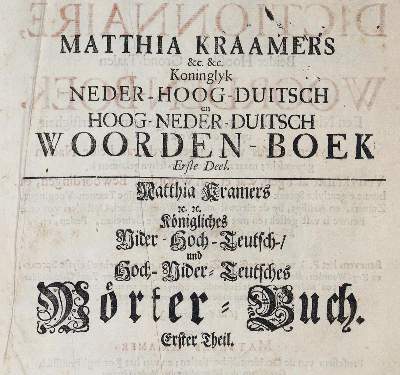 MATTHIA KRAAMERS
&c. &c.
Koninglyk
NEDER-HOOG-DUITSCH
en
HOOG-NEDER-DUITSCH
WOORDEN-BOEK
Erste Deel.
Matthia Kramers
ꝛc. ꝛc.
Königliches
Nider-Hoch-Teutsch-/
und
Hoch-Nider-Teutsches
Wörter-Buch.
Erster Theil.